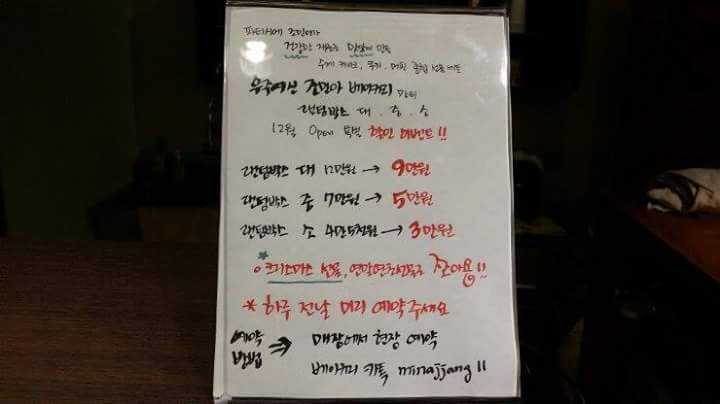 파티쉐에 조민아가
건강한 재료로 맛있게 만든
수제 케이크, 쿠키, 머핀 종합 선물세트
우주여신 조민아 베이커리
랜덤박스 대 . 중 . 소
12월 Open 특별 할인 이벤트 !!
랜덤박스 대 12만원 → 9만원
랜덤박스 중 7만원 → 5만원
랜덤박스 소 4만5천원 → 3만원
크리스마스 선물, 연말연초선물로 좋아용!!
* 하루 전날 미리 예약주세요
예약 방법 ⇒ 매장에서 현장 예약
베이커리 카톡 minajjang !!